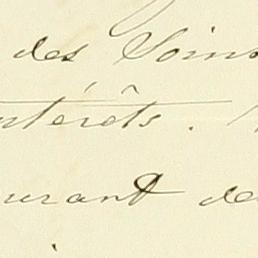 des Soins
ntérêts.
urant de